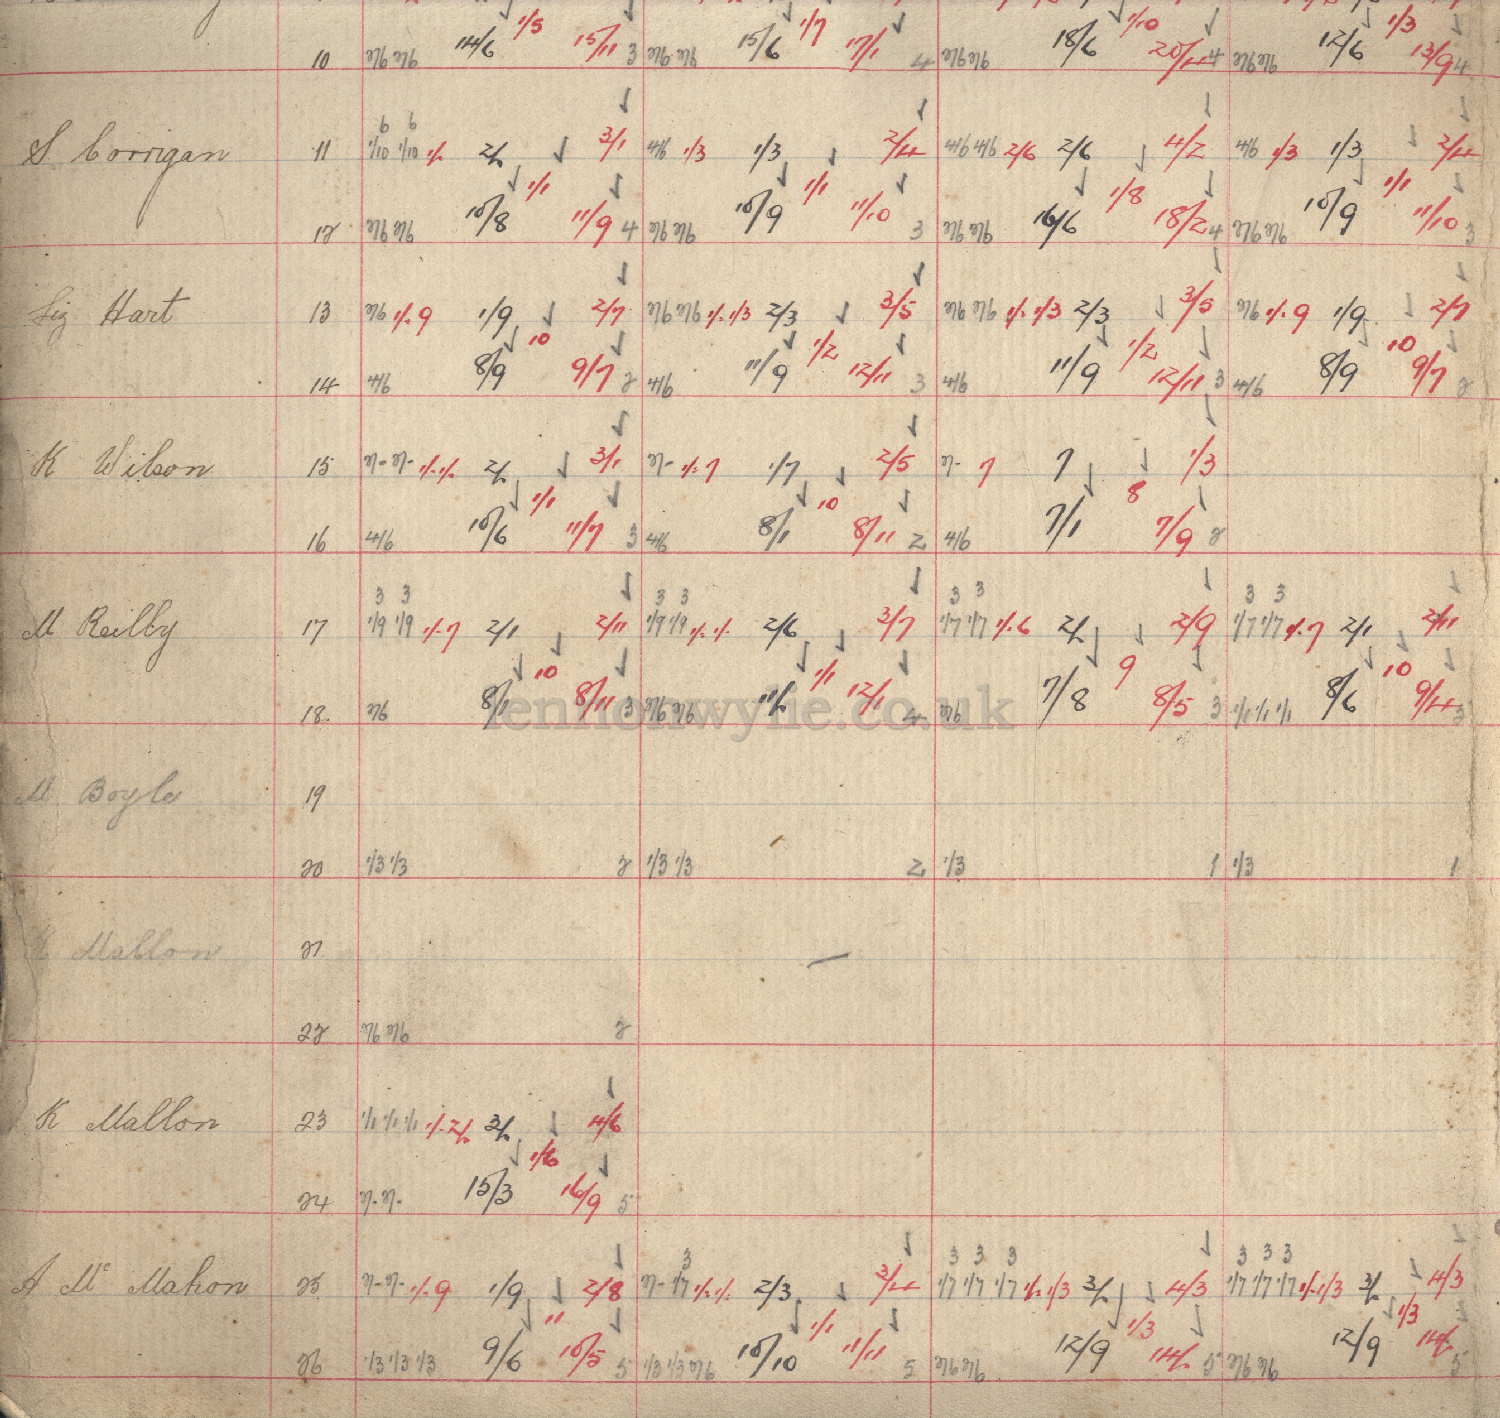 10 2/6 2/6 14/6 1/5 15/11 3 2/6 2/6 15/6 1/7 17/1 4 2/6 2/6 18/6 1/10 20/4 4 2/6 2/6 12/6 1/3 13/9 4
6 6
S Corrigan 11 1/10 1/10 1/- 2/- 3/1 4/6 1/3 1/3 2/4 4/6 4/6 2/6 2/6 4/2 4/6 1/3 1/3 2/4
1/1 1/1 1/8 1/1
12 2/6 2/6 10/8 11/9 4 2/6 2/6 10/9 11/10 3 2/6 2/6 16/6 18/2 4 2/6 2/6 10/9 11/10 3
Liz Hart 13 2/6 1/- 9 1/9 2/7 2/6 2/6 1/- 1/3 2/3 3/5 2/6 2/6 1/- 1/3 2/3 3/5 2/6 1/- 9 1/9 2/7
10 1/2 1/2 10
14 4/6 8/9 9/7 2 4/6 11/9 12/11 3 4/6 11/9 12/11 3 4/6 8/9 9/7 2
K Wilson 15 2/- 2/- 1/- 1/- 2/- 3/1 2/- 1/- 7 1/7 2/5 2/- 7 7 1/3
1/1 10 8
16 4/6 10/6 11/7 3 4/6 8/1 8/11 2 4/6 7/1 7/9 2
3 3 3 3 3 3 3 3
M Reilly 17 1/9 1/9 1/- 7 2/1 2/11 1/9 1/9 1/- 1/- 2/6 3/7 1/7 1/7 1/- 6 2/- 2/9 1/7 1/7 1/- 7 2/1 2/11
10 1/1 9 10
18. 2/6 8/1 8/11 3 2/6 2/6 11/- 12/1 4 2/6 7/8 8/5 3 1/1 1/1 1/1 8/6 9/4 3
lennonwylie.co.uk
M Boyle 19
20 1/3 1/3 2 1/3 1/3 2 1/3 1 1/3 1
K Mallon 21
22 2/6 2/6 2
K Mallon 23 1/1 1/1 1/1 1/- 2/- 3/- 4/6
1/6
24 2/- 2/- 15/3 16/9 5
3 3 3 3 3 3 3
A Mc Mahon 25 2/- 2/- 1/- 9 1/9 2/8 2/- 1/7 1/- 1/- 2/3 3/4 1/7 1/7 1/7 1/- 1/3 3/- 4/3 1/7 1/7 1/7 1/- 1/3 3/- 4/3
11 1/1 1/3 1/3
26 1/3 1/3 1/3 9/6 10/5 5 1/3 1/3 2/6 10/10 11/11 5 2/6 2/6 12/9 14/- 5 2/6 2/6 12/9 14/- 5